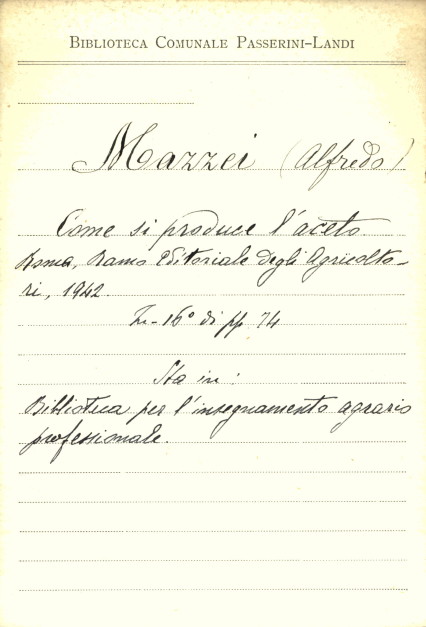 BIBLIOTECA COMUNALE PASSERINI-LANDI
Mazzei (Alfredo)
Come si produce l'aceto.
Roma, Ramo Editoriale degli Agricolto-
ri, 1942.
In-16° di pp. 74
Sta in:
Biblioteca per l'insegnamento agrario
professionale.